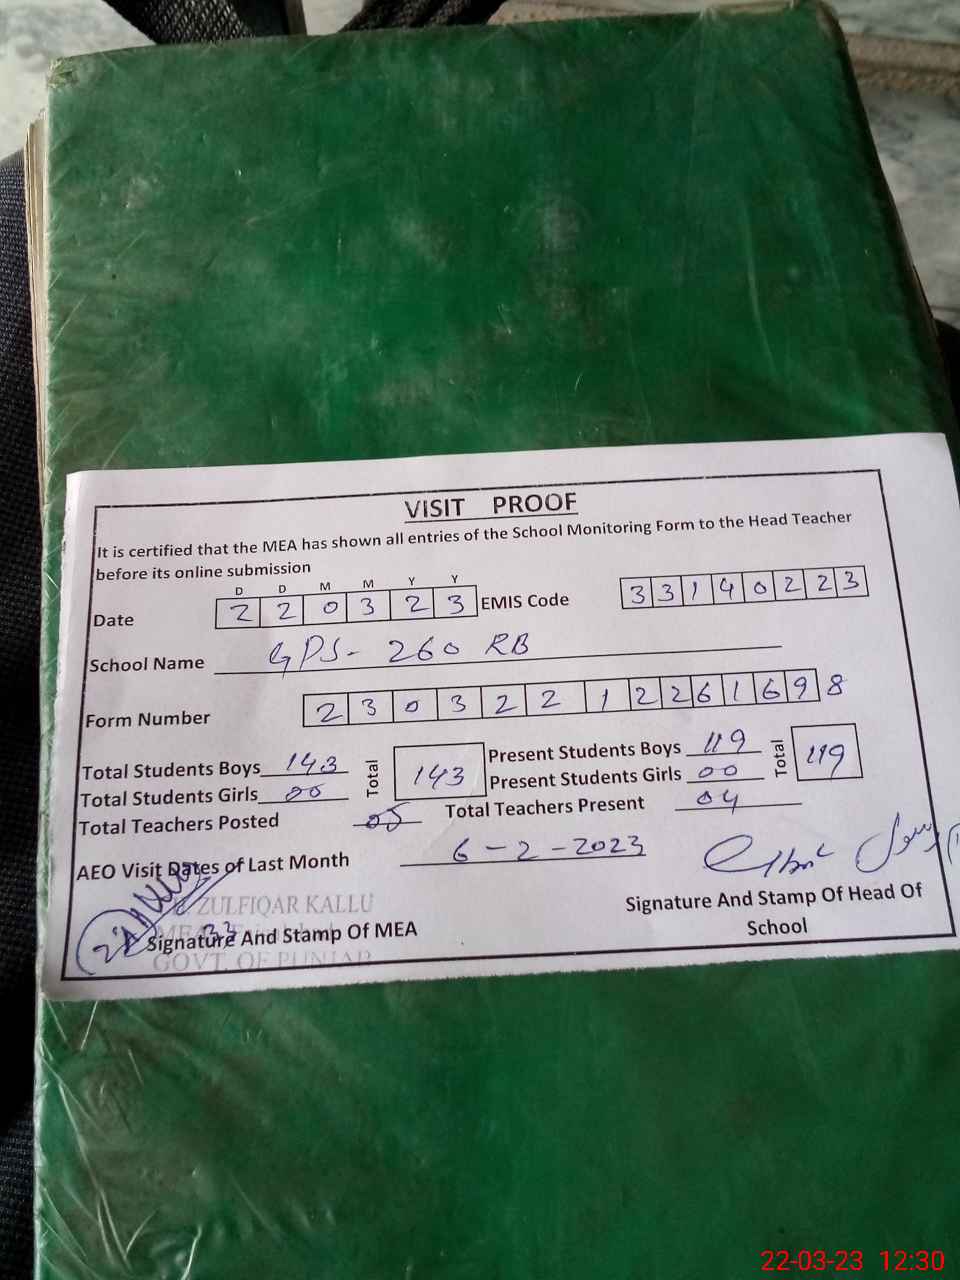 VISIT PROOF
It is certified that the MEA has shown all entries of the School Monitoring Form to the Head Teacher
before its online submission
D D M M Y Y
Date 2 2 0 3 2 3 EMIS Code 3 3 1 4 0 2 2 3
School Name GPS- 260 RB
Form Number 2 3 0 3 2 2 1 2 2 6 1 6 9 8
Total Students Boys 143 Total 143 Present Students Boys 119 Total 119
Total Students Girls 00 Present Students Girls 00
Total Teachers Posted 05 Total Teachers Present 04
AEO Visit Dates of Last Month 6-2-2023
ZULFIQAR KALLU
Signature And Stamp Of MEA
GOVT. OF PUNJAB
Signature And Stamp Of Head Of
School
22-03-23 12:30